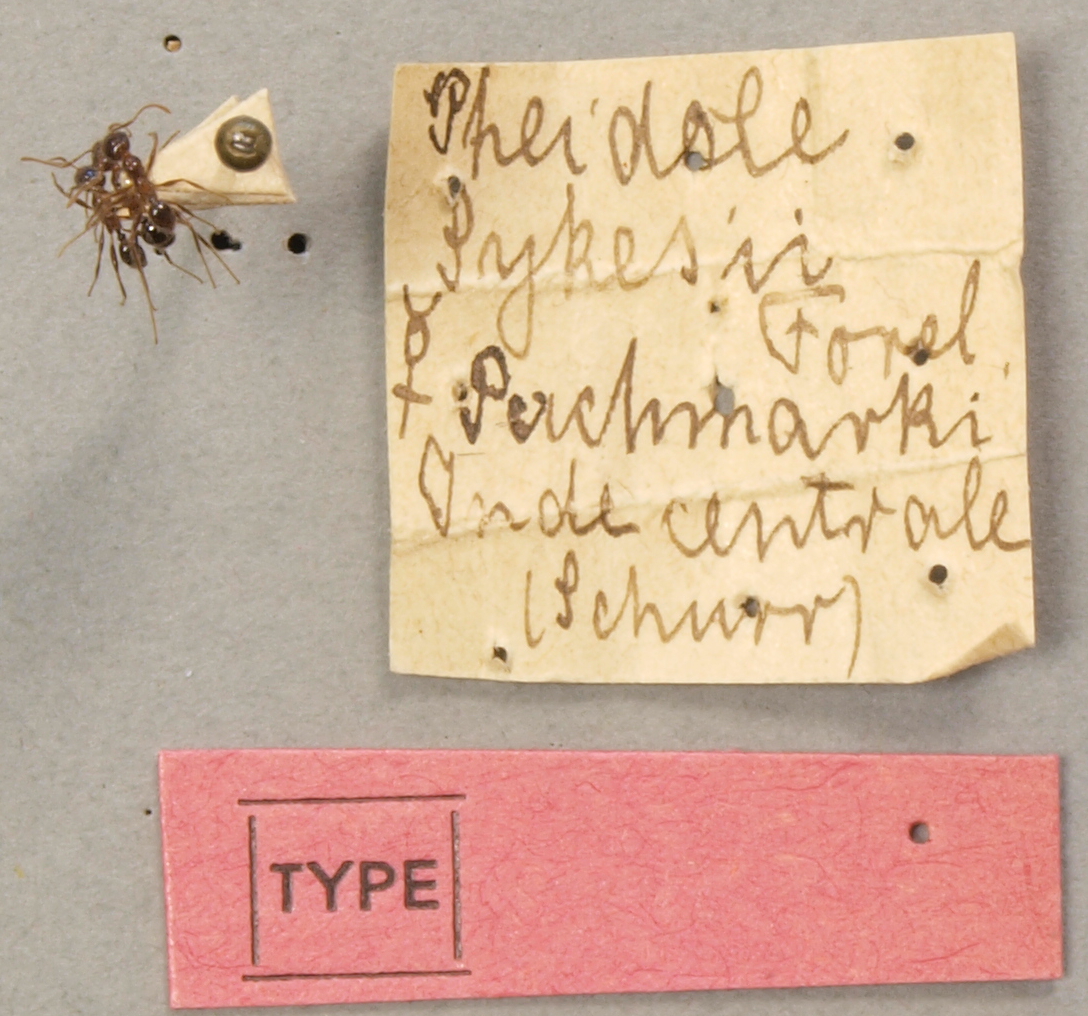 Pheidole
Sykesii
☿ Forel.
Puchmarki
Inde centrale
(Schurr)
TYPE